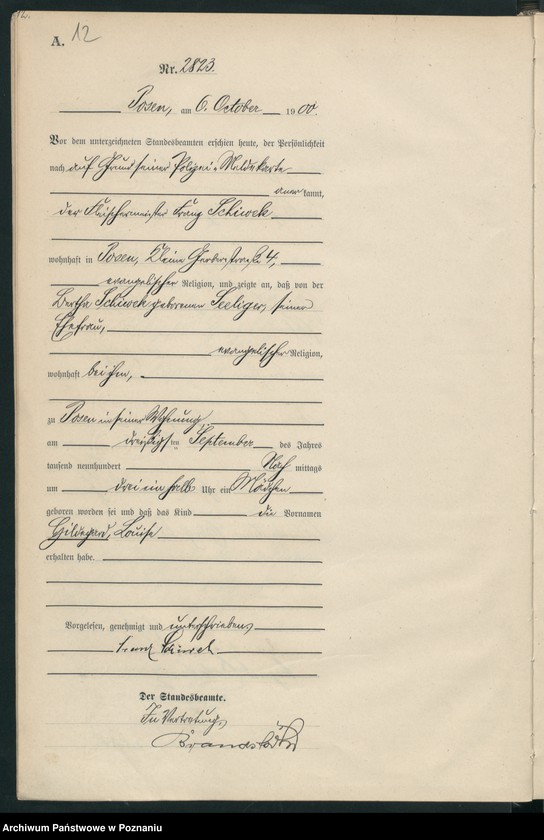 A. 12
Nr. 2823.
Posen, am 6. October 1900.
Vor dem unterzeichneten Standesbeamten erschien heute, der Persönlichkeit
nach auf Grund seiner Polizei-Meldekarte
anerkannt,
der Fleischermeister Franz Schiwek
wohnhaft in Posen, Kleine Gerberstraße 4,
evangelischer Religion, und zeigte an, daß von der
Bertha Schiwek geborenen Seeliger, seiner
Ehefrau,
evangelischer Religion,
wohnhaft bei ihm,
zu Posen in seiner Wohnung
am dreißigsten September des Jahres
tausend neunhundert Nach mittags
um drei ein halb Uhr ein Mädchen
geboren worden sei und daß das Kind die Vornamen
Hildegard, Louise
erhalten habe.
Vorgelesen, genehmigt und unterschrieben
Franz Schiwek
Der Standesbeamte.
In Vertretung,
Archiwum Państwowe w Poznaniu